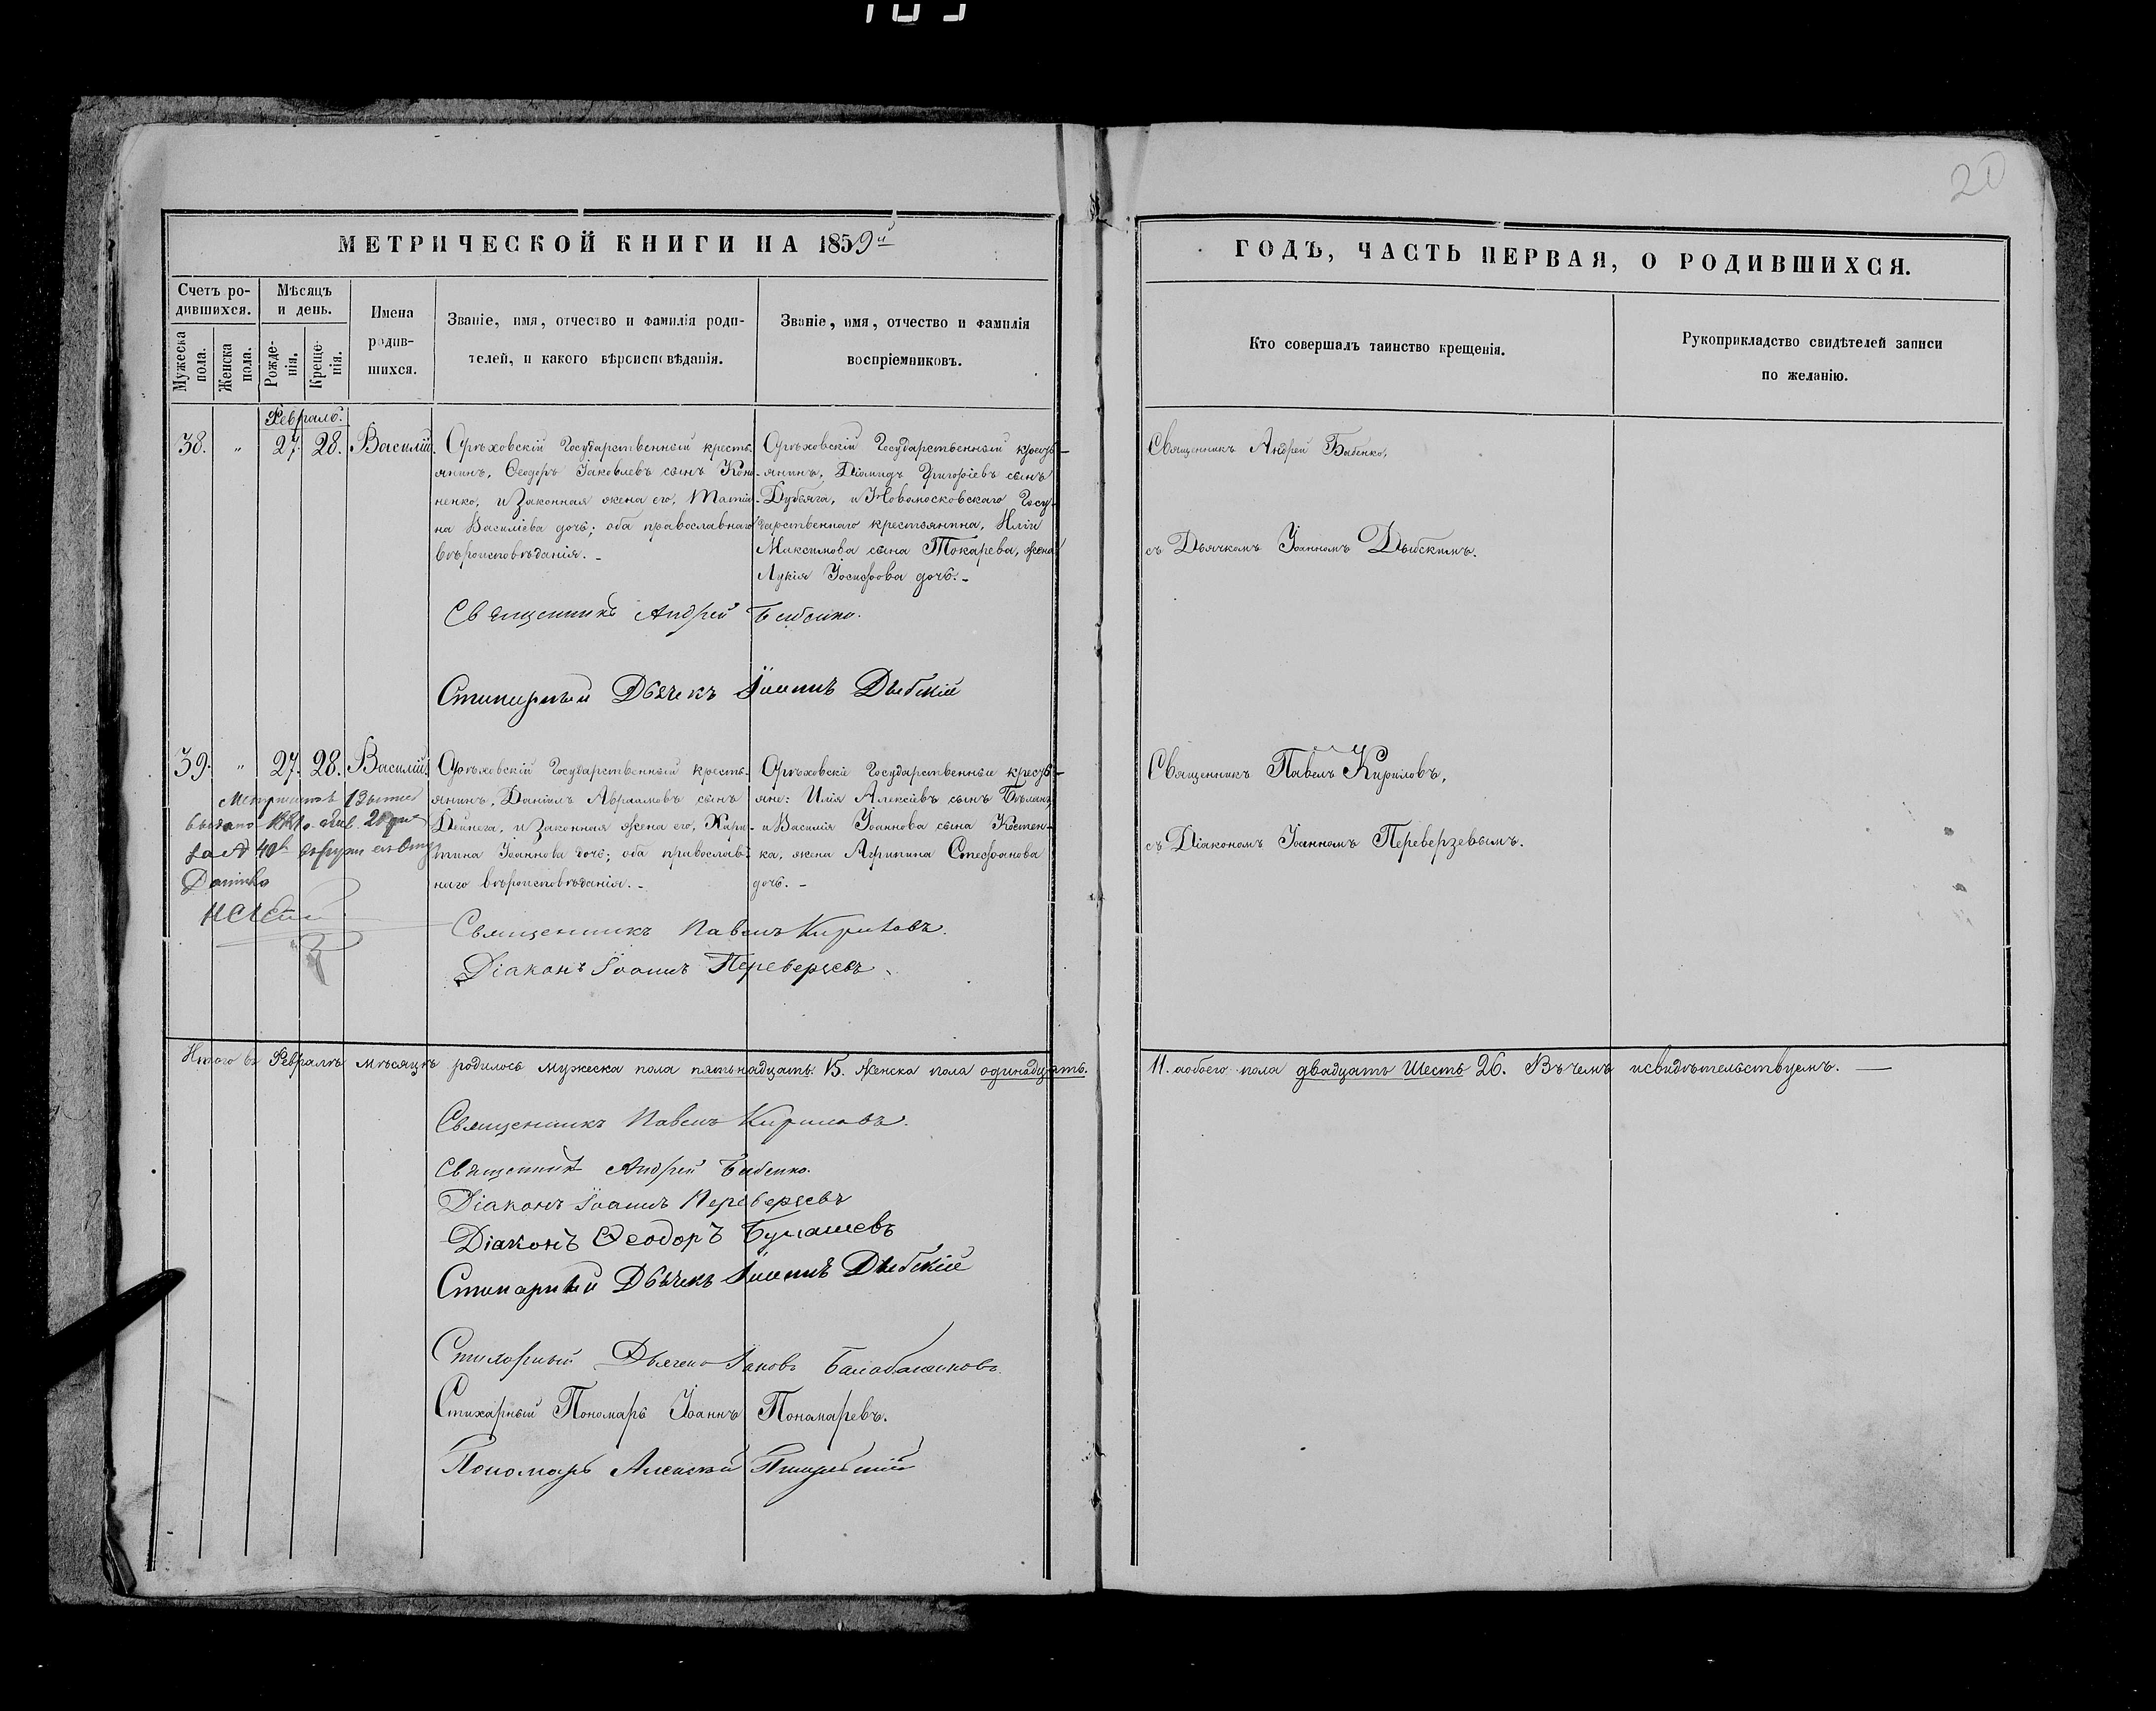 20
МЕТРИЧЕСКОЙ КНИГИ НА 1859й
ГОДЪ, ЧАСТЬ ПЕРВАЯ, О РОДИВШИХСЯ.
Счетъ ро-
дившихся.
Мужеска пола.
Женска пола.
Мѣсяцъ
и день.
Рожде-
нія.
Креще-
нія.
Имена
родив-
шихся.
Званіе, имя, отчество и фамилія роди-
телей, и какого вѣроисповѣданія.
Званіе, имя, отчество и фамилія
воспріемниковъ.
Кто совершалъ таинство крещенія.
Рукоприкладство свидѣтелей записи
по желанію.
Февраль.
38. " 27. 28. Василій.
Орѣховскій Государственный кресть-
янинъ, Ѳеодоръ Іаковлевъ сынъ Коно-
ненко, и законная жена его, Татія-
на Василіева дочь; оба православнаго
вѣроисповѣданія. -
Орѣховскій Государственный кресть-
янинъ, Діомидъ Григоріевъ сынъ
Дубяга, и Новомосковскаго Госу-
дарственнаго крестьянина, Иліи
Максимова сына Токарева, жена
Лукія Іосифова дочь. -
Священникъ Андрей Бабенко,
съ Дьячкомъ Іоанномъ Дыбскимъ.
Священникъ Андрей Бабенко.
Стихарный Дьячекъ Іоаннъ Дыбскій
39. " 27. 28. Василій.
Орѣховскій Государственный кресть-
янинъ, Даніилъ Авраамовъ сынъ
Дейнега, и законная жена его, Хари-
тина Іоаннова дочь; оба православ-
наго вѣроисповѣданія. -
Орѣховскіе Государственные кресть-
яне: Илія Алексіевъ сынъ
и Василія Іоаннова сына Костен-
ка, жена Агрипина Стефанова
дочь. -
Священникъ Павелъ Кириловъ,
съ Діакономъ Іоанномъ Переверзевымъ.
выдано
за № 40й
Священникъ Павелъ Кириловъ.
Діаконъ Іоаннъ Переверзевъ
Итого въ Февралѣ мѣсяцѣ родилось мужеска пола пятьнадцать. 15. Женска пола одинадцать.
11. а обоего пола двадцать шесть 26. Въ чемъ и свидѣтельствуемъ. —
Священникъ Павелъ Кириловъ.
Священникъ Андрей Бабенко.
Діаконъ Іоаннъ Переверзевъ
Діаконъ Ѳеодоръ
Стихарный Дьячекъ Іоаннъ Дыбскій
Стихарный Дьячекъ Іаковъ
Стихарный Пономарь Іоаннъ Пономаревъ.
Пономарь Алексѣй